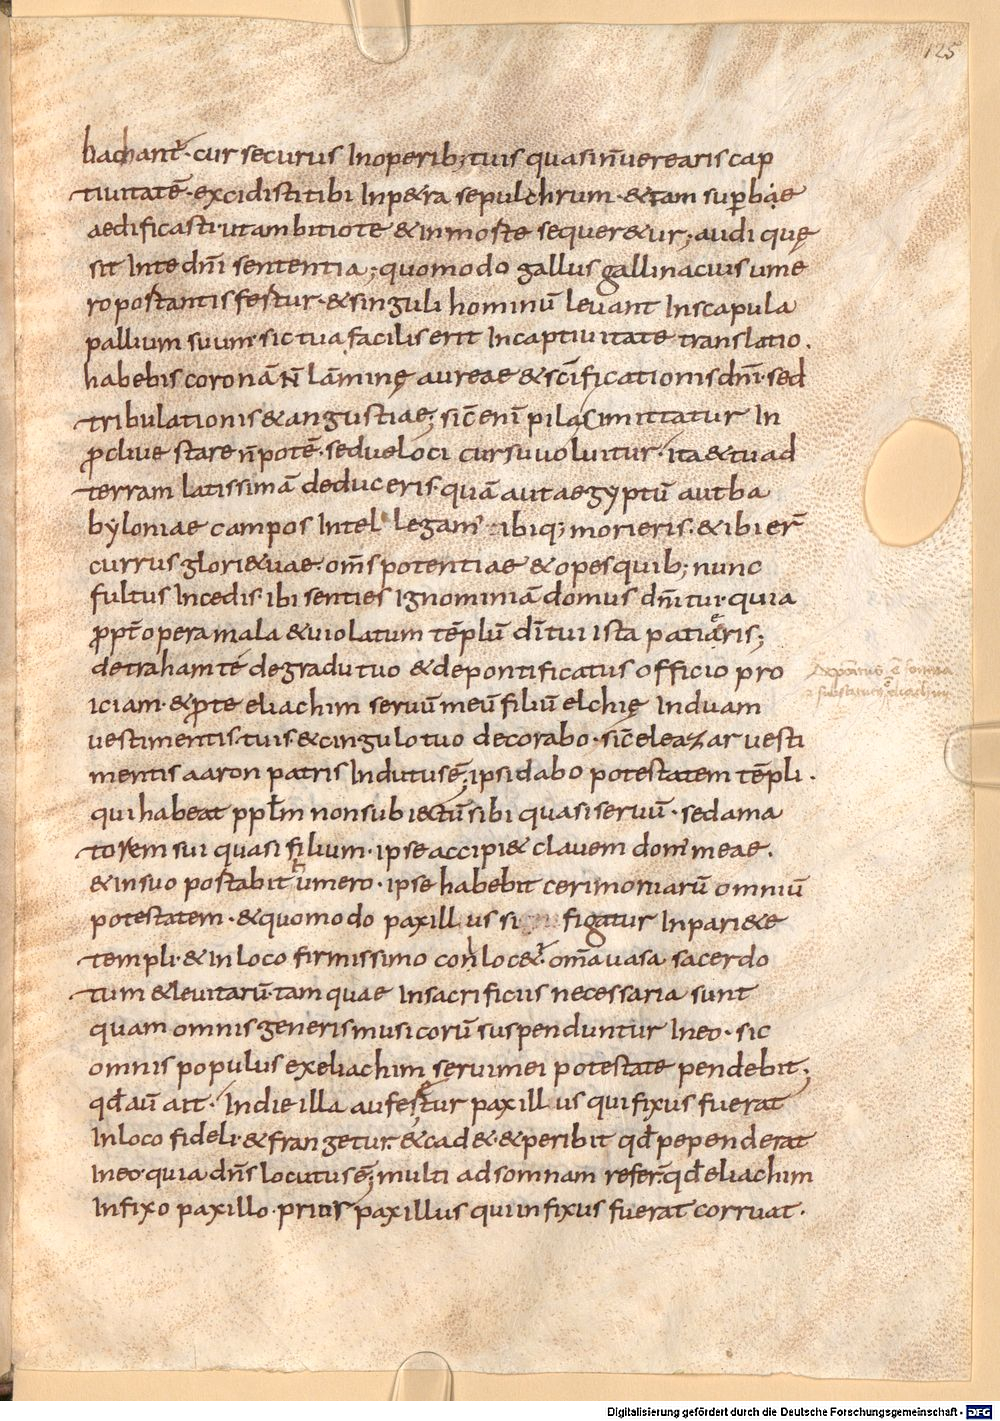 125
bachant̄· cur securus Inoperib; tuis quasi n̄ verearis cap
tiuitatē· excidisti tibi Inp&ra sepulchrum· & tam suꝑbae
aedificasti ut ambitio te & in morte sequer&ur; audi quę
sit Inte dn̄i sententia; quomodo gallus gallinacius ume
ro portantis fertur· & singuli hominū levant Inscapula
pallium suum· sic tua facilis erit Incaptiuitate translatio.
habebis coronā N̄ lāminę aureae & sc̄ificationis dn̄i· sed
tribulationis & angustiae; sic̄ enī pila si mittatur In
ꝓclive stare n̄ potē· sed veloci cursu voluitur· ita & tu ad
terram latissimā deduceris· quā aut aegyptū aut ba
byloniae campos Intellegam̄· ibiq; morieris· & ibi er̄
currus gloriae tuae· om̄s potentiae & opes quib; nunc
fultus Incedis· ibi senties Ignominiā domus dn̄i tui· quia
ꝓpt̄ opera mala & violatum tēplū dī tui ista patiaris;
detraham te de gradu tuo & de pontificatus officio pro
iciam· & ꝓ te eliachim servū meū filiū elchię Induam
vestimentis tuis· & cingulo tuo decorabo· sic̄ eleazar vesti
mentis aaron patris Indutus ē; ipsi dabo potestatem tēpli·
qui habeat ppl̄m non subiectū sibi quasi servū· sed ama
torem sui quasi filium· ipse accipi& clavem dom' meae.
& in suo portabit umero· ipse habebit cerimoniarū omniū
potestatem· & quomodo paxillus si figatur Inpari&e
templi· & In loco firmissimo conloc&r̄ om̄a vasa sacerdo
tum & levitarū· tam quae Insacrificiis necessaria sunt
quam omnis generis musicorū suspenduntur Ineo· sic
omnis populus ex eliachim servi mei potestate pendebit;
qd̄ aū ait· Indie illa aufertur paxillus qui fixus fuerat
Inloco fideli· & frangetur· & cad& & peribit qd̄ pependerat
Ineo· quia dn̄s locutus ē; multi ad somnam refer̄· qd̄ eliachim
Infixo paxillo· prior paxillus qui infixus fuerat corruat·
Digitalisierung gefördert durch die Deutsche Forschungsgemeinschaft - DFG